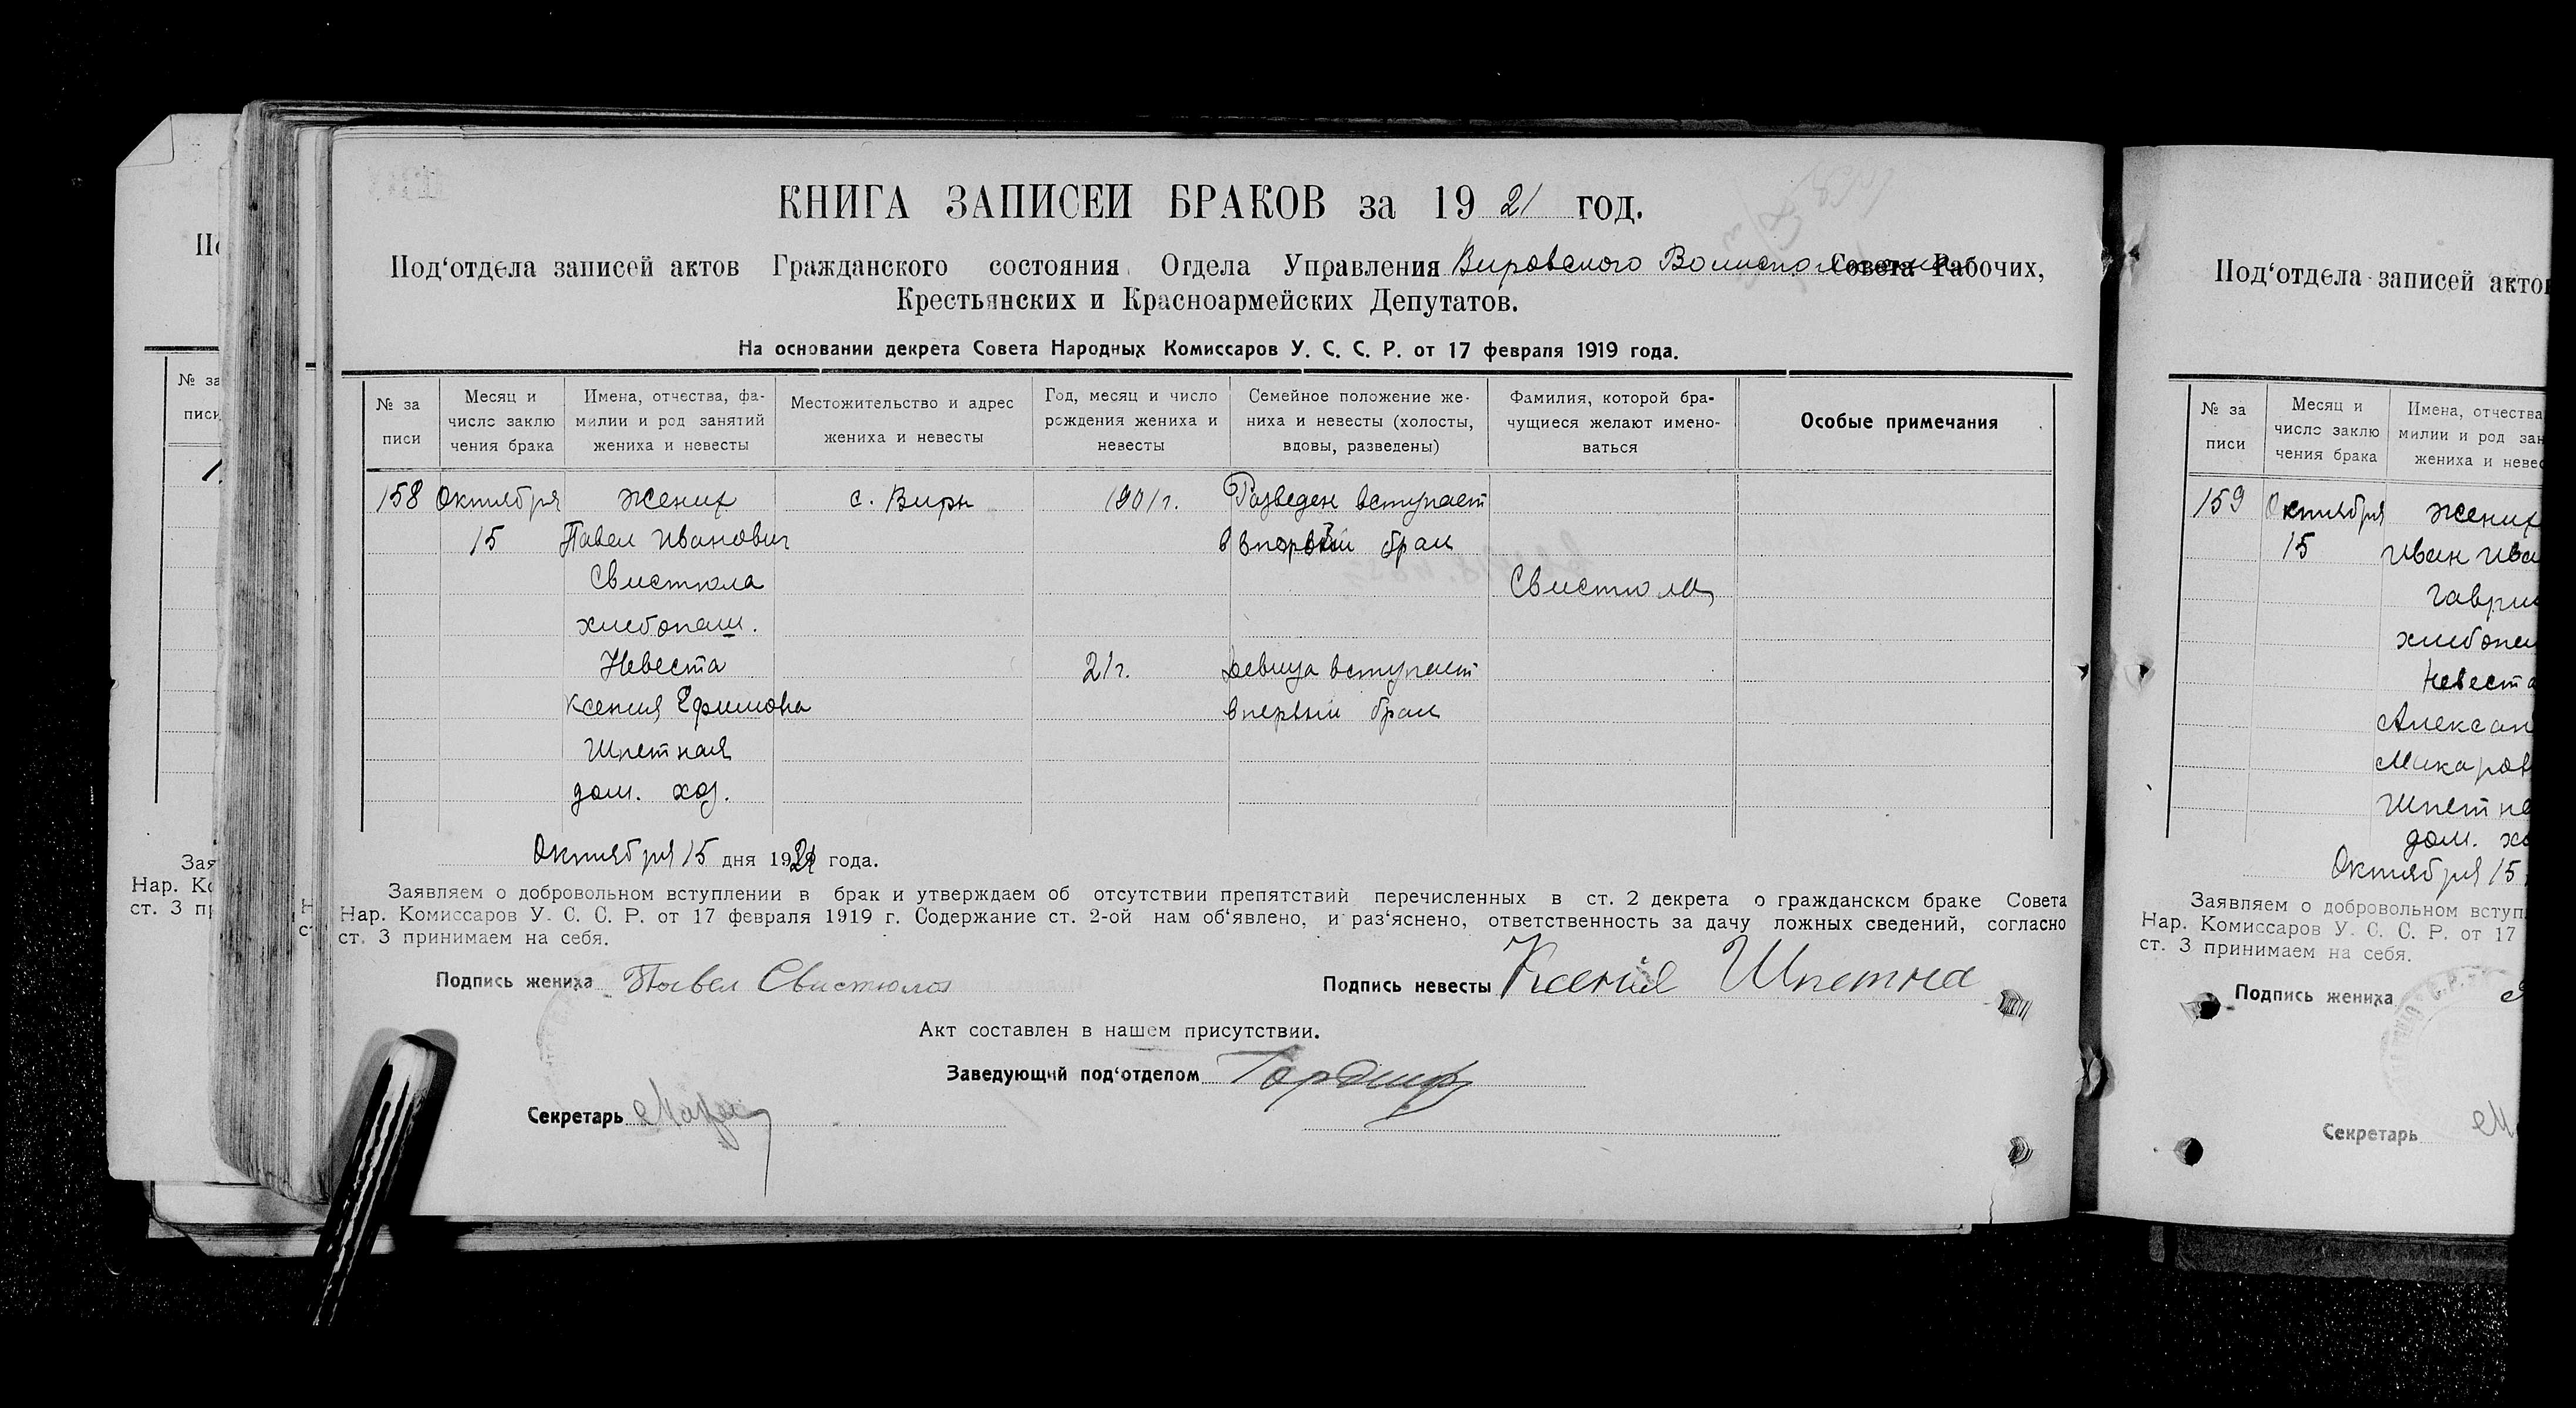 КНИГА ЗАПИСЕЙ БРАКОВ за 1921 год.
Под‘отдела записей актов Гражданского состояния Отдела Управления Вировского Волисполкома Совета Рабочих,
Крестьянских и Красноармейских Депутатов.
На основании декрета Совета Народных Комиссаров У. С. С. Р. от 17 февраля 1919 года.
№ за
писи
Месяц и
число заклю
чения брака
Имена, отчества, фа-
милии и род занятий
жениха и невесты
Местожительство и адрес
жениха и невесты
Год, месяц и число
рождения жениха и
невесты
Семейное положение же-
ниха и невесты (холосты,
вдовы, разведены)
Фамилия, которой бра-
чущиеся желают имено-
ваться
Особые примечания
158 Октября Жених с. Виры 1901г. Разведен вступает
15 Павел Иванович в второй брак
Свистюла Свистюла
хлебопаш.
Невеста 21г. девица вступает
Ксения Ефимовна в первый брак
Шпетная
дом. хоз.
Октября 15 дня 1921 года.
Заявляем о добровольном вступлении в брак и утверждаем об отсутствии препятствий перечисленных в ст. 2 декрета о гражданском браке Совета
Нар. Комиссаров У. С. С. Р. от 17 февраля 1919 г. Содержание ст. 2-ой нам об‘явлено, и раз‘яснено, ответственность за дачу ложных сведений, согласно
ст. 3 принимаем на себя.
Подпись жениха Павел Свистюла
Подпись невесты Ксенія Шпетна
Акт составлен в нашем присутствии.
Заведующий под‘отделом
Секретарь
Под‘отдела записей актов
№ за
писи
Месяц и
число заклю
чения брака
Имена, отчества
милии и род зан
жениха и невес
159 Октября Жених
15 Иван Ива
Гаври
хлебопа
Невеста
Алексан
Макаров
Шпетна
дом. хо
Октября 15
Заявляем о добровольном вступ
Нар. Комиссаров У. С. С. Р. от 17
ст. 3 принимаем на себя.
Подпись жениха
Секретарь
№ за
писи
Зая
Нар. Ко
ст. 3 пр